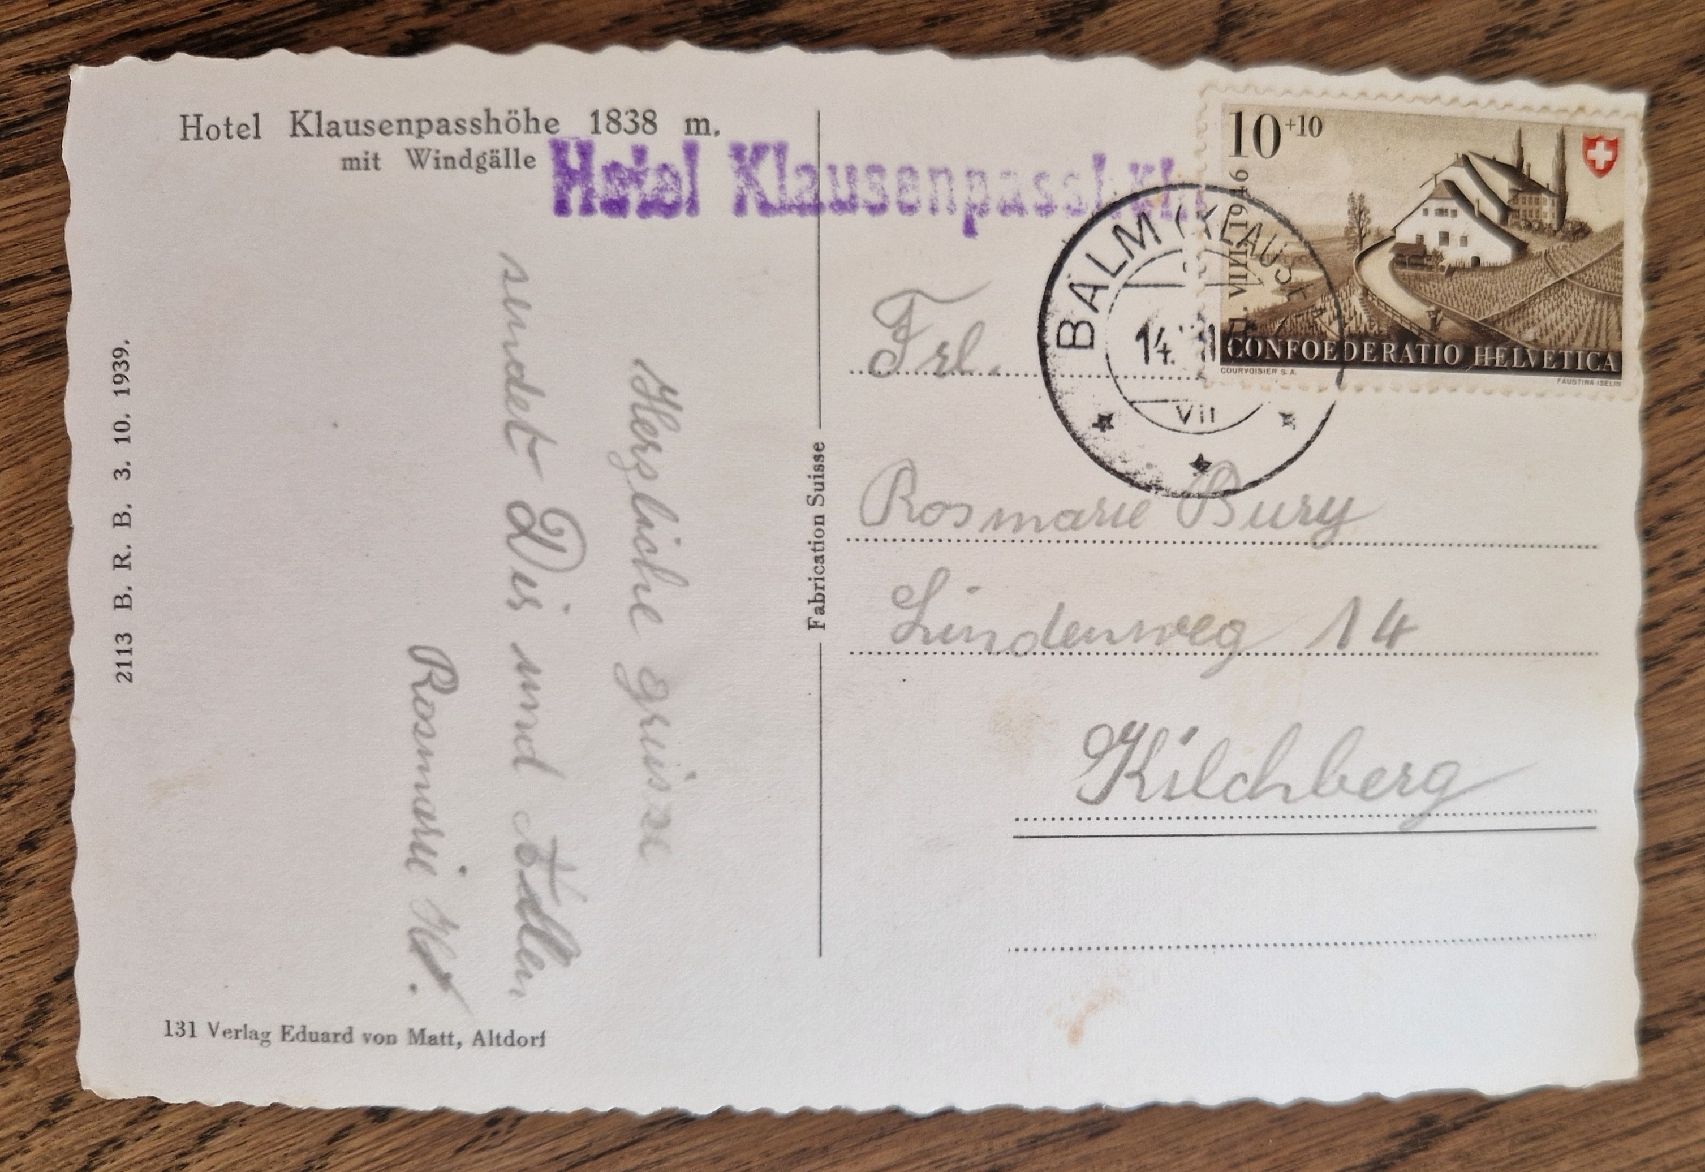 Hotel Klausenpasshöhe 1838 m.
mit Windgälle
Hotel Klausenpasshöh
2113 B. R. B. 3. 10. 1939.
Herzliche grüsse
sendet Dir und Allen
Rosmarie H.
131 Verlag Eduard von Matt, Altdorf
Fabrication Suisse
10+10
1. VIII 1946
CONFOEDERATIO HELVETICA
COURVOISIER S.A.
FAUSTINA ISELIN
BALM (KLAUSE
14.
VII
Frl.
Rosmarie Bury
Lindenweg 14
Kilchberg